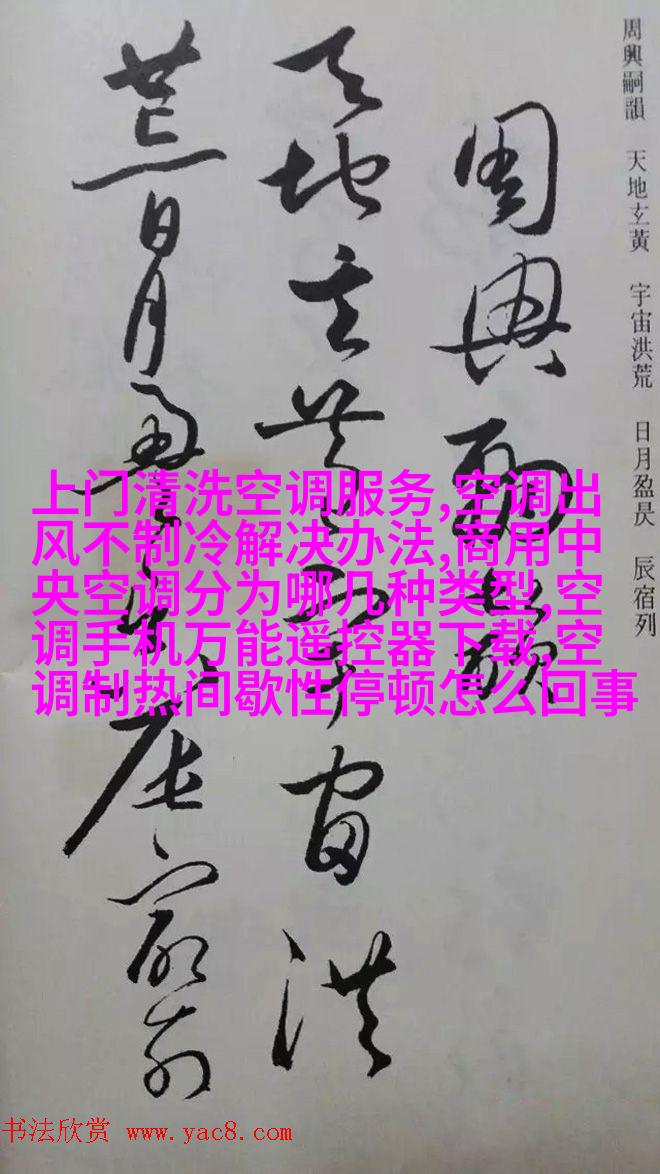 周興嗣韻 天地玄黃 宇宙洪荒 日月盈昃 辰宿列
周興嗣韻
天地玄黃宇宙洪
荒日月盈昃辰宿列
上门清洗空调服务,空调出
风不制冷解决办法,商用中
央空调分为哪几种类型,空
调手机万能遥控器下载,空
调制热间歇性停顿怎么回事
书法欣赏 www.yac8.com